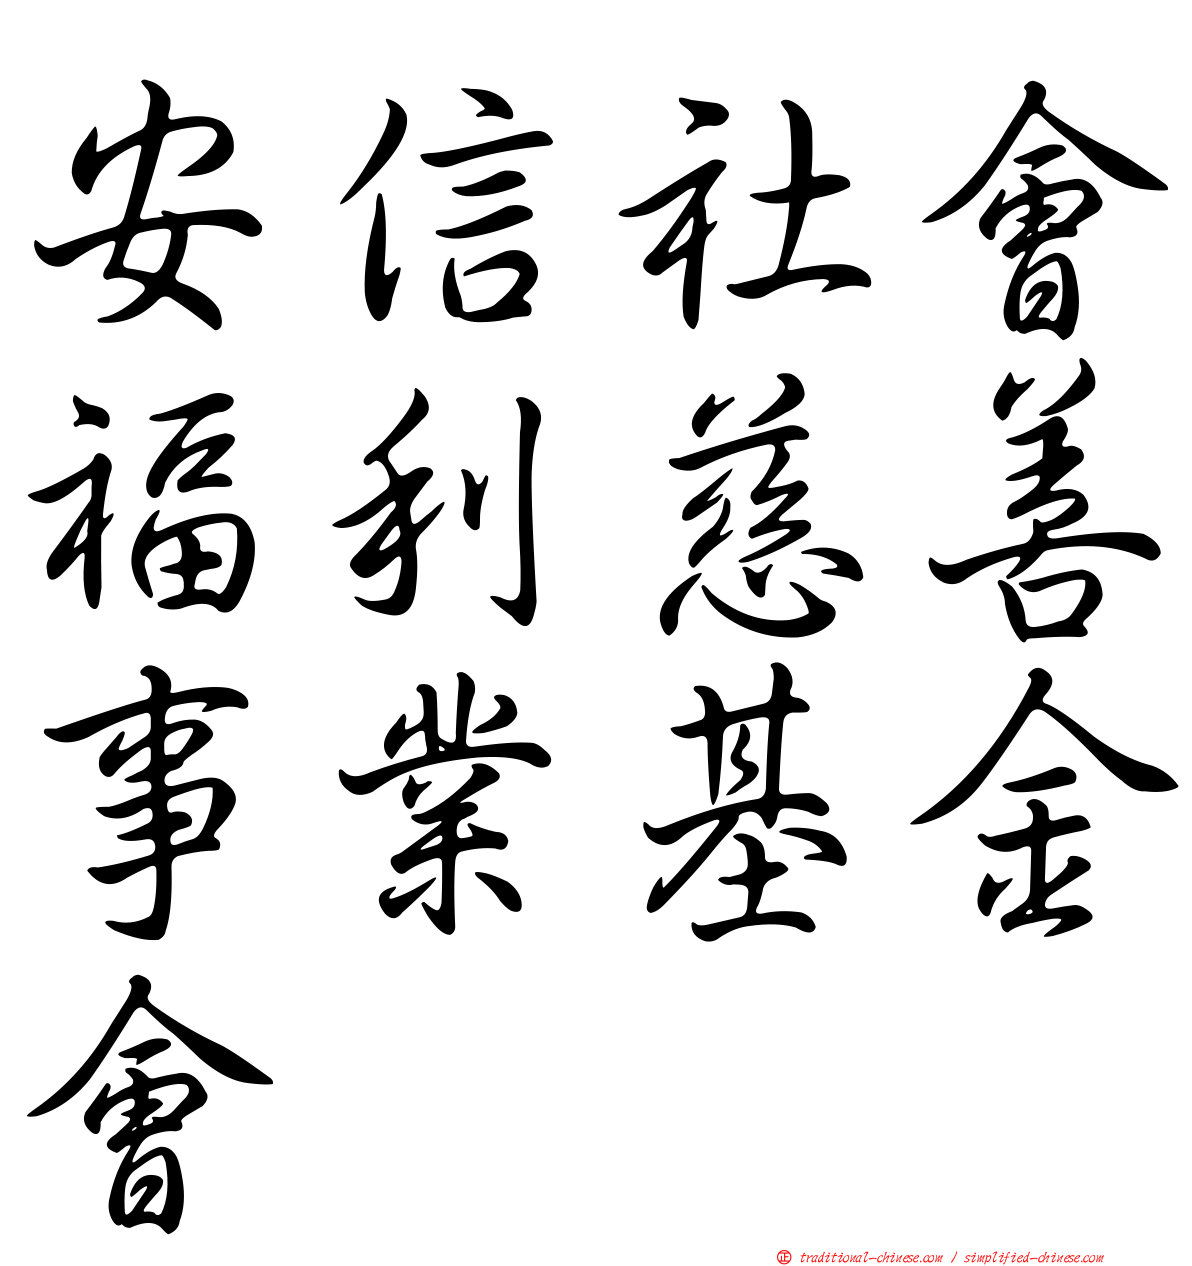 安信社會
福利慈善
事業基金
會
正 traditional-chinese.com / simplified-chinese.com